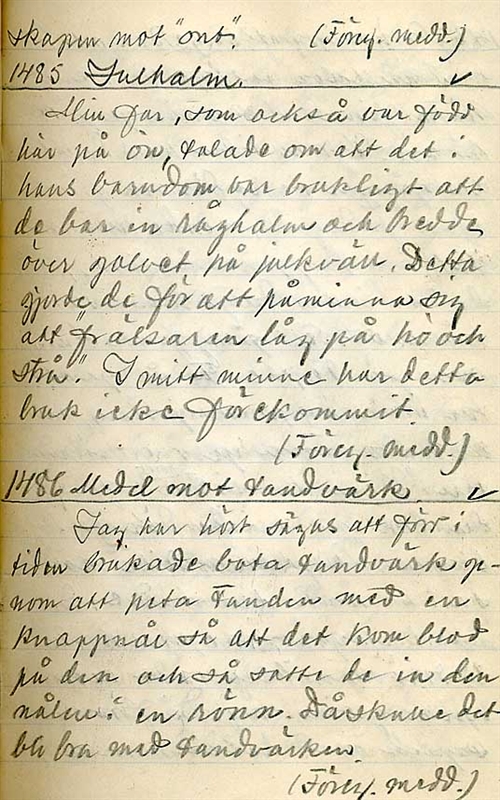 skapen mot "ont". (Förey. medd.)
1485 Julhalm.
Min far, som också var född
här på ön, talade om att det i
hans barndom var brukligt att
de bar in råghalm och bredde
över golvet på julkväll. Detta
gjorde de för att påminna sig
att "frälsaren låg på hö och
strå." I mitt minne har detta
bruk icke förekommit.
(Förey. medd.)
1486 Medel mot tandvärk.
Jag har hört sägas att förr i
tiden brukade bota tandvärk ge-
nom att peta tanden med en
knappnål så att det kom blod
på den och så satte de in den
nålen i en rönn. Då skulle det
bli bra med tandvärken.
(Förey. medd.)